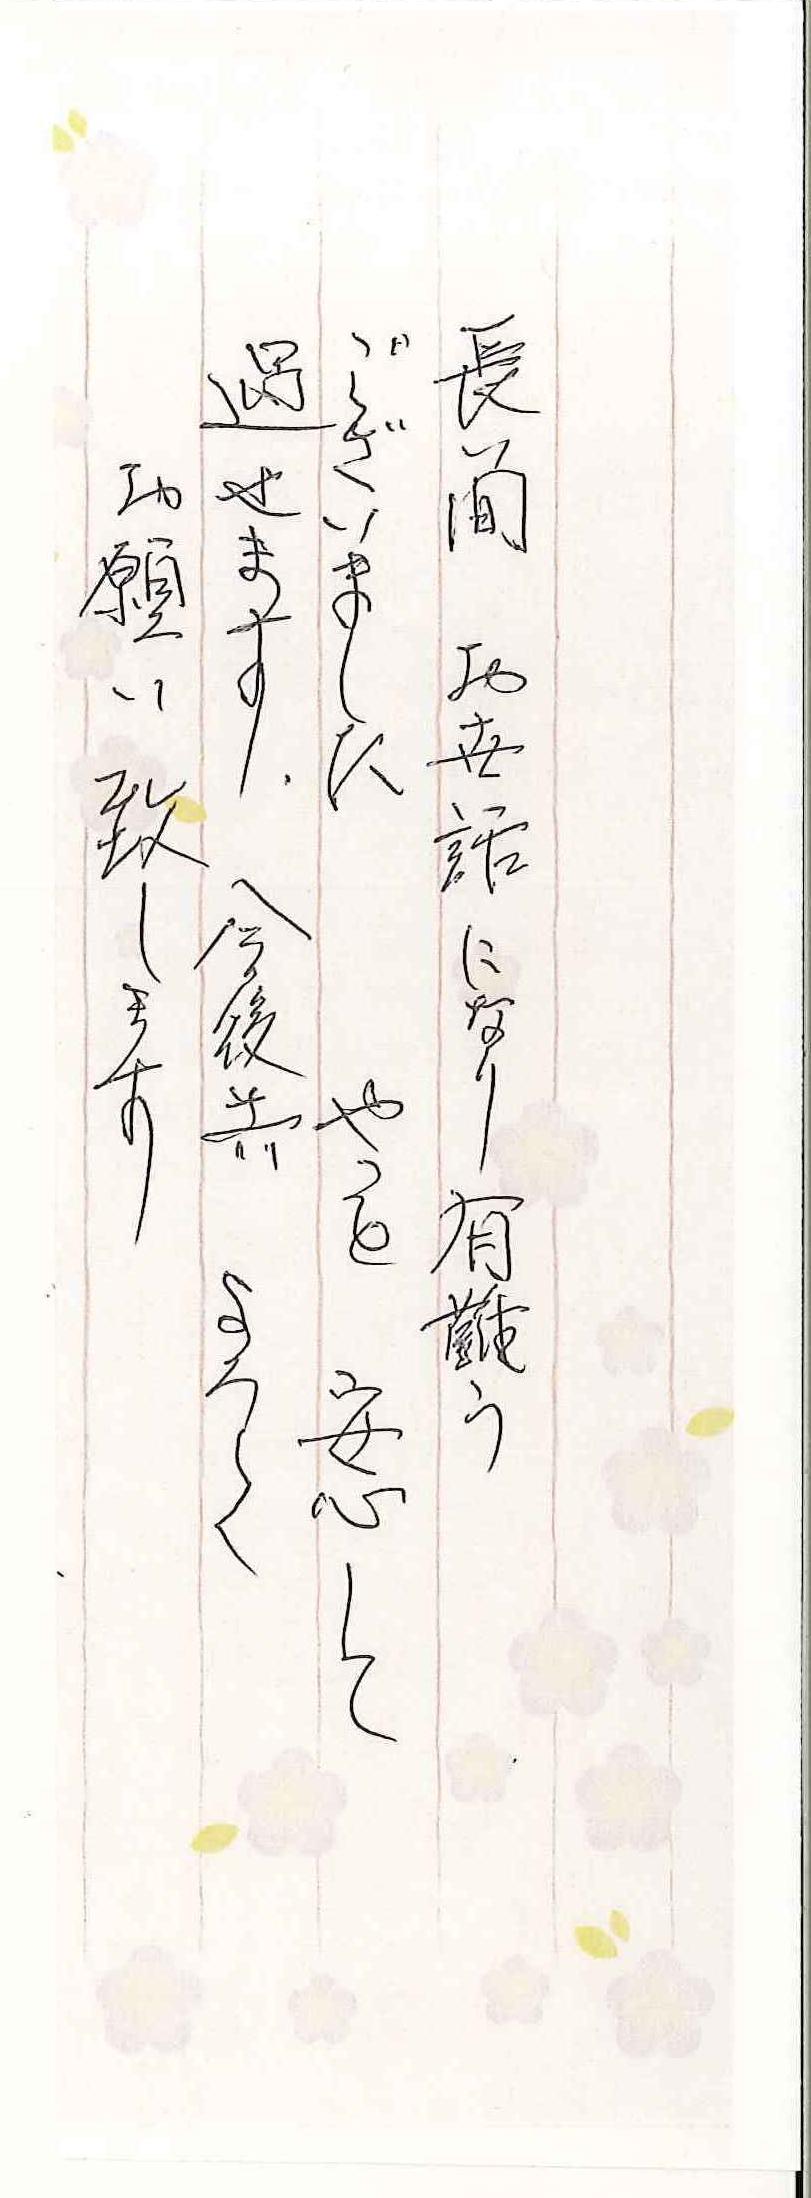 長間 お世話になり有難う
ございました やっと 安心して
過せます、 今後共 よろしく
お願い致します